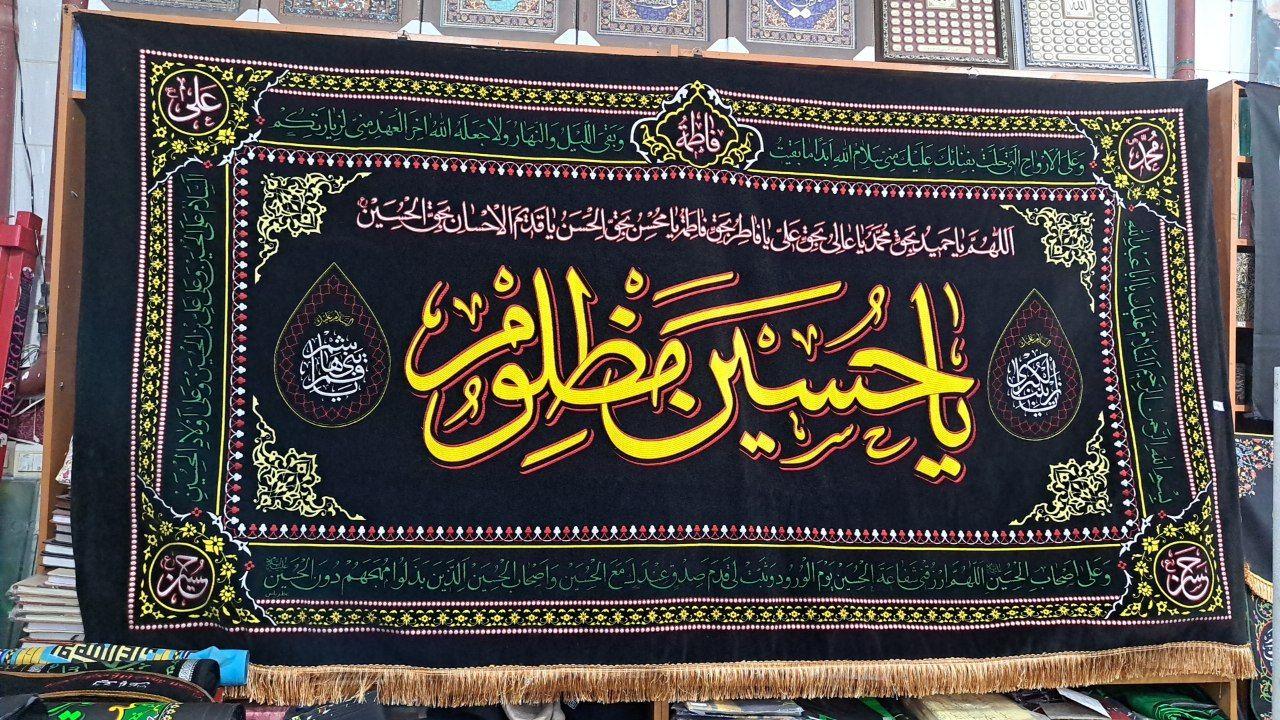 محمد
فاطمة
علی
وعلی الارواح التی حلت بفنائک علیک منی سلام الله ابدا ما بقیت
وبقی اللیل والنهار ولا جعله الله اخر العهد منی لزیارتکم
اللهم یا حمید بحق محمد یا عالی بحق علی یا فاطر بحق فاطمة یا محسن بحق الحسن یا قدیم الاحسان بحق الحسین
یا حسین مظلوم
السلام علی الحسین وعلی علی بن الحسین وعلی اولاد الحسین
وعلی اصحاب الحسین اللهم ارزقنی شفاعة الحسین یوم الورود وثبت لی قدم صدق عندک مع الحسین واصحاب الحسین الذین بذلوا مهجهم دون الحسین
حسن
حسین